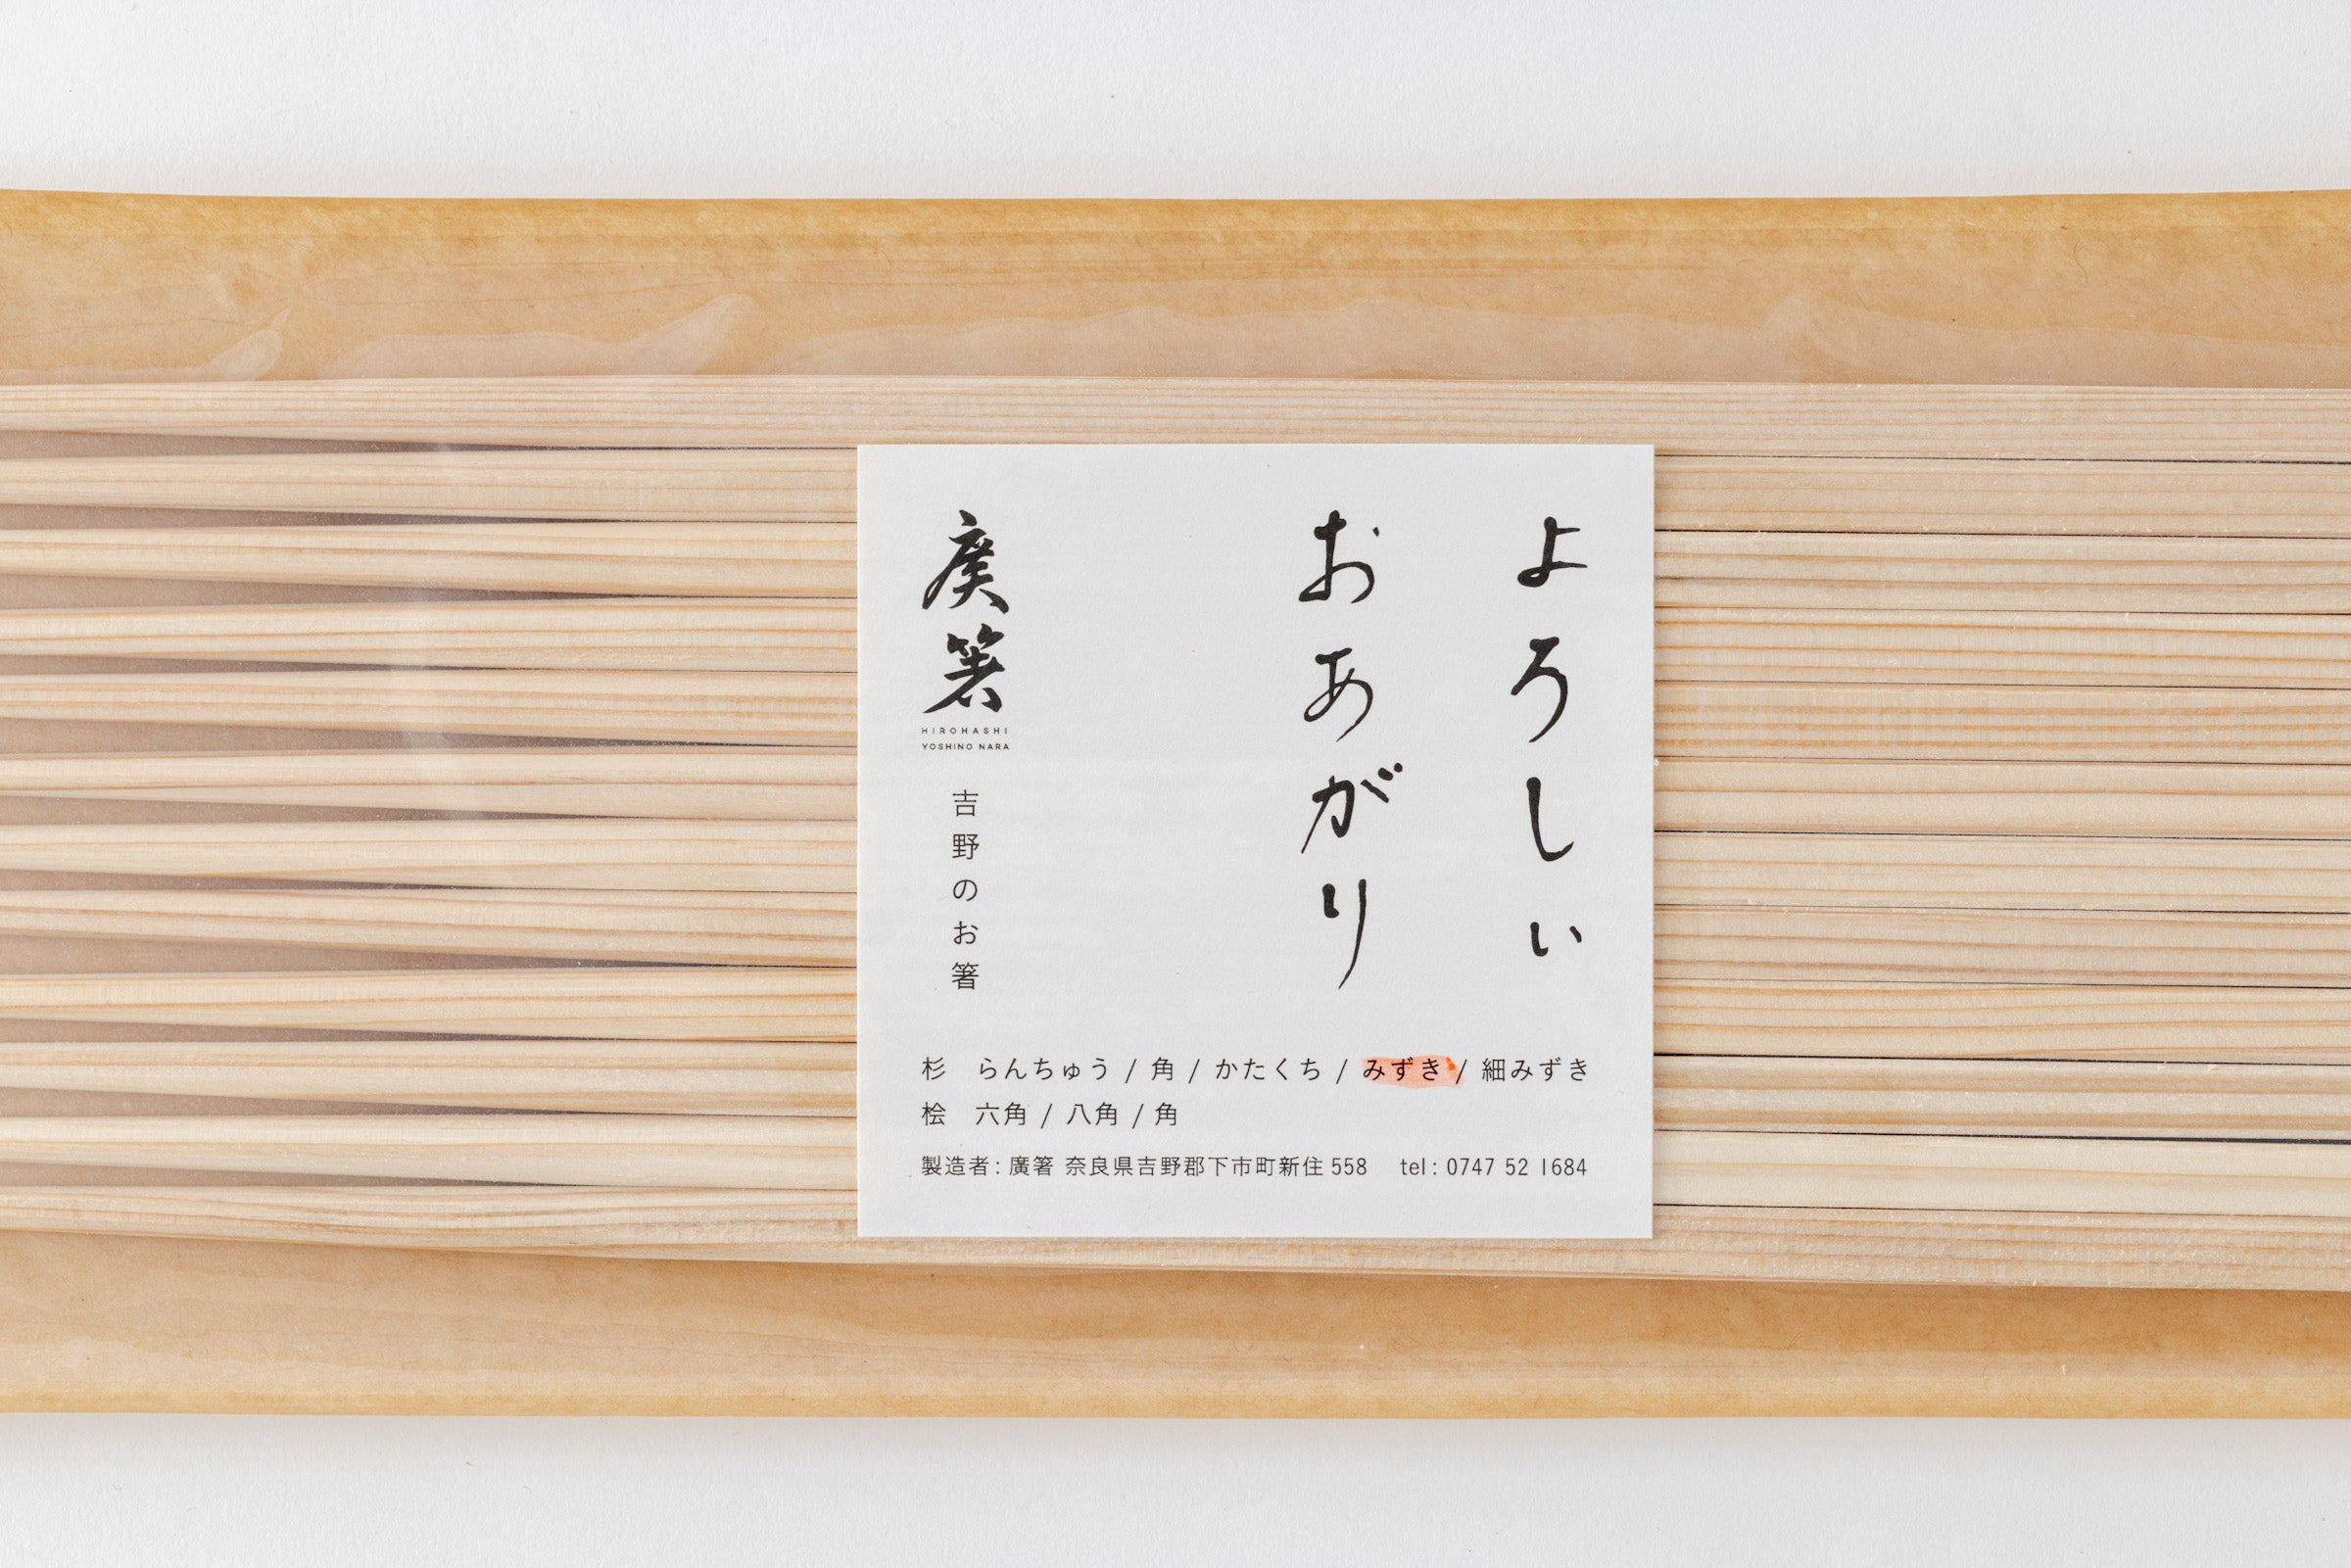 よろしい
おあがり
廣箸
HIROHASHI
YOSHINO NARA
吉野のお箸
杉 らんちゅう / 角 / かたくち / みずき / 細みずき
桧 六角 / 八角 / 角
製造者: 廣箸 奈良県吉野郡下市町新住558 tel: 0747 52 1684